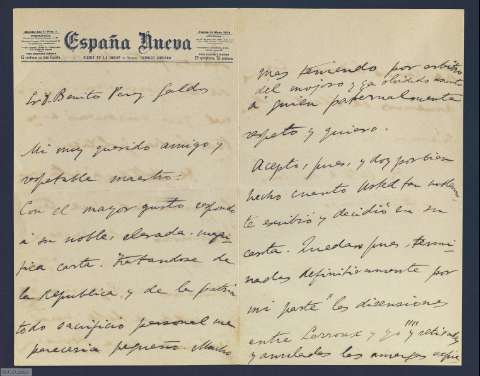 España Nueva
Sr. D. Benito Perez Galdos
Mi muy querido amigo y
respetable maestro:
Con el mayor gusto respondo
á su noble, elevada, magní-
fica carta. Tratandose de
la República y de la patria
todo sacrificio personal me
pareceria pequeño. Mucho
mas teniendo por arbitro
del enojoso y ya olvidado asunto
á quien paternalmente
respeto y quiero.
Acepto, pues, y doy por bien
hecho cuanto Usted tan
te escribió y decidió en su
carta. Quedan pues, termi-
nadas definitivamente por
mi parte "las disensiones
entre Lerroux y yo" y retiradas
y anuladas las amargas